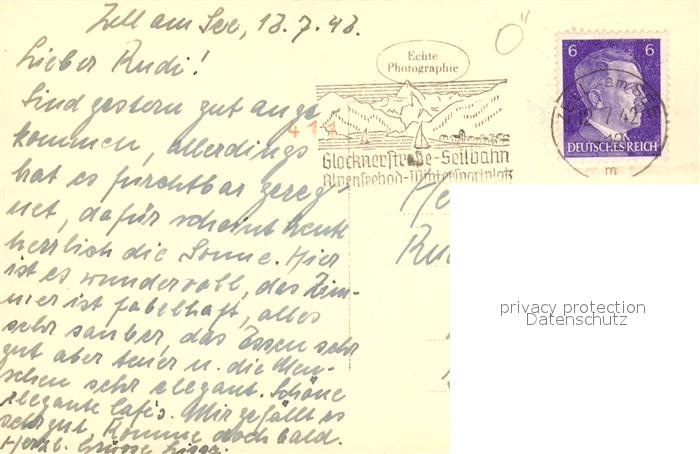 Zell am See, 13.7.43.
Lieber Rudi!
Sind gestern gut ange
kommen, allerdings
hat es furchtbar gereg
net, dafür scheint heute
herrlich die Sonne. Hier
ist es wundervoll, das Zim-
mer ist fabelhaft, alles
sehr sauber, das Essen sehr
gut aber teuer u. die Men-
schen sehr elegant. Schöne
elegante Cafés. Mir gefällt es
sehr gut. Komme doch bald.
Herzl. Grüsse
Echte
Photographie
411
Glocknerstraße-Seilbahn
Alpenseebad-Wintersportplatz
6 6
DEUTSCHES REICH
privacy protection
Datenschutz